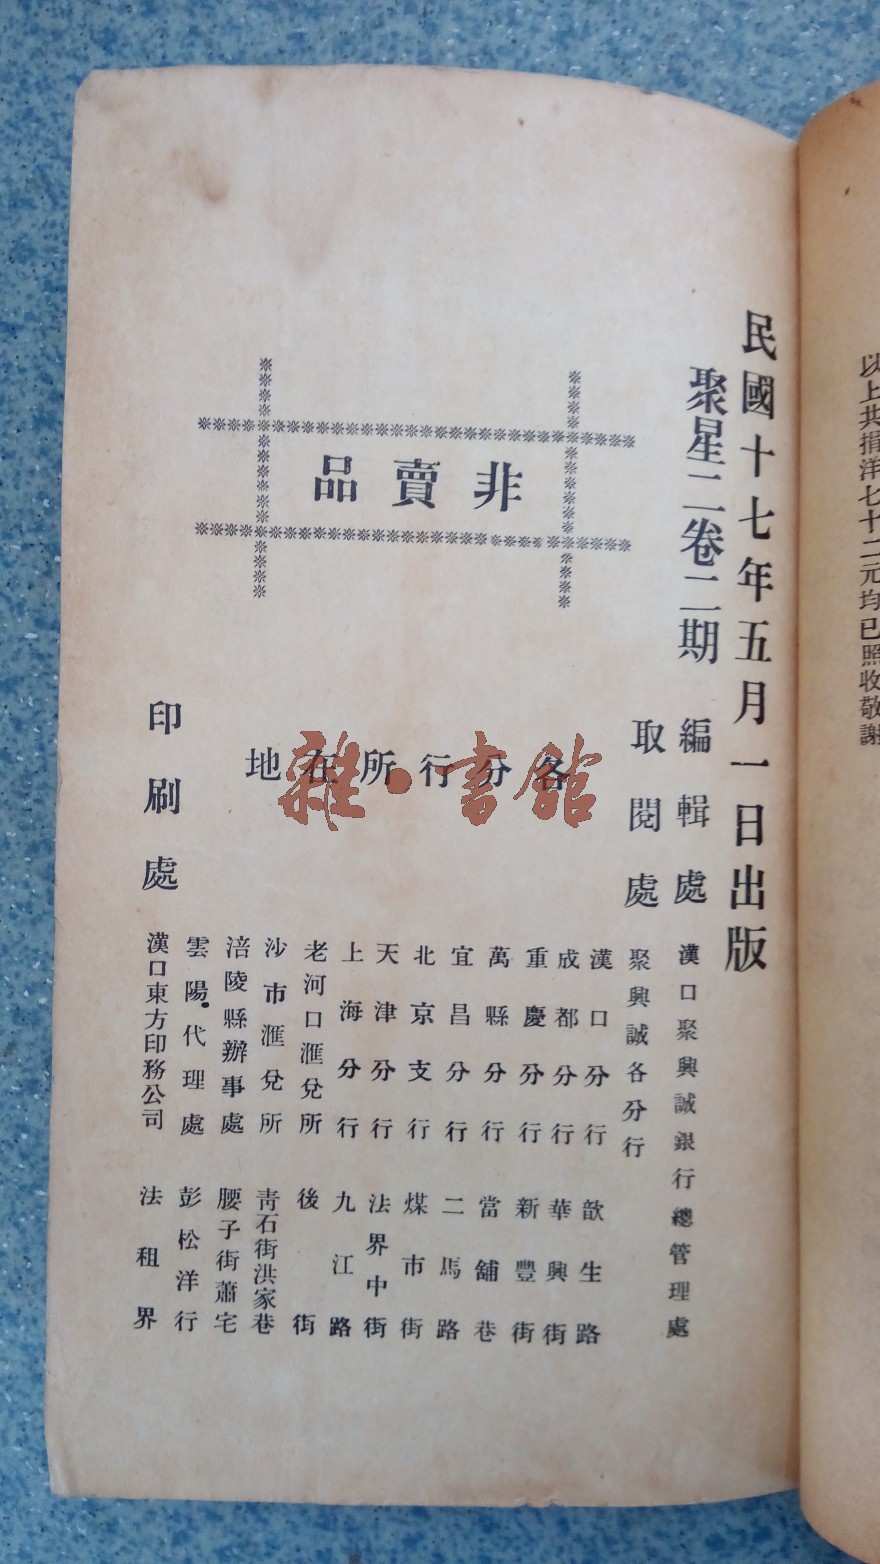 以上共捐洋七十二元均已照收敬謝
民國十七年五月一日出版
聚星二卷二期
編輯處 漢口聚興誠銀行總管理處
取閱處 聚興誠各分行
非賣品
各分行所在地
漢口分行 歆生路
成都分行 華興街
重慶分行 新豐街
萬縣分行 當舖巷
宜昌分行 二馬路
北京支行 煤市街
天津分行 法界中街
上海分行 九江路
老河口滙兌所 後街
沙市滙兌所 靑石街洪家巷
涪陵縣辦事處 腰子街蕭宅
雲陽代理處 彭松洋行
印刷處 漢口東方印務公司 法租界
雜·書館